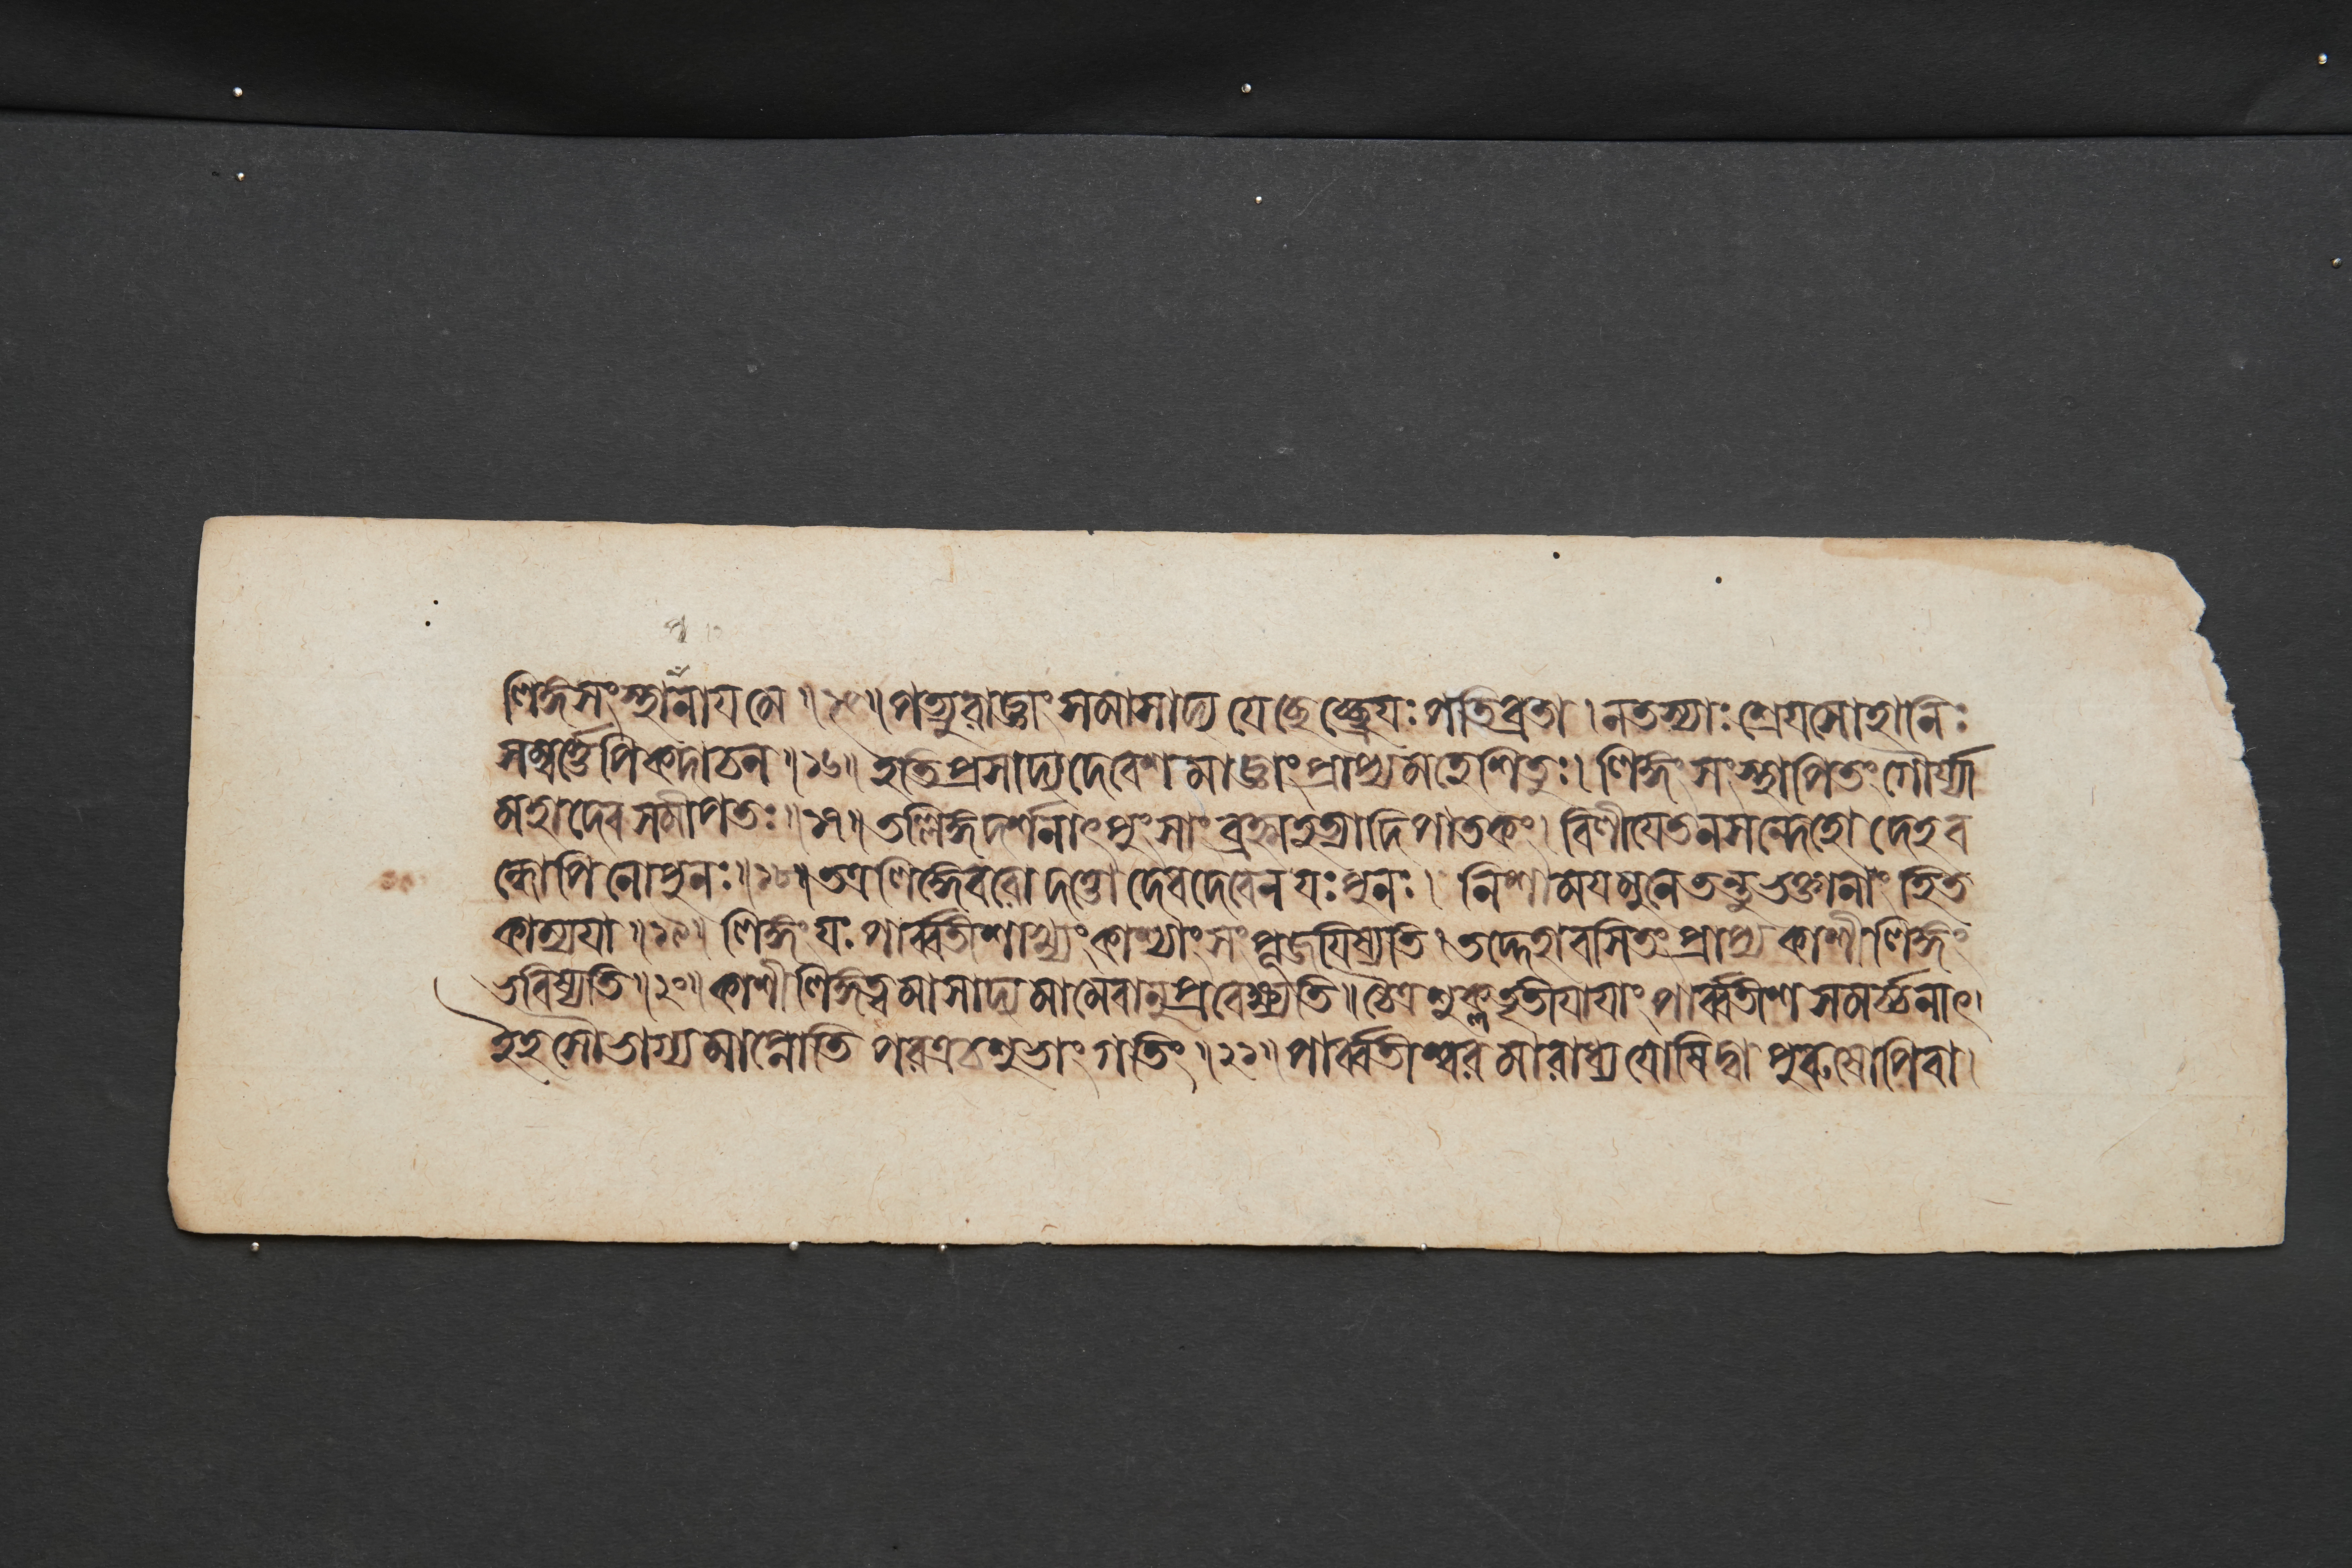 লিঙ্গসংস্থাপনায় মে ॥ ১৫ ॥ পত্যুরাজ্ঞাং সমাসাদ্য যেচ্ছেচ্ছ্রেয়ঃ পতিব্রতা । ন তস্যাঃ শ্রেয়সো হানিঃ
সম্বর্ত্তেপি কদাচন ॥ ১৬ ॥ ইতি প্রসাদ্য দেবেশমাজ্ঞাং প্রাপ্য মহেশিতুঃ । লিঙ্গং সংস্থাপিতং গৌর্য্যা
মহাদেবসমীপতঃ ॥ ১৭ ॥ তল্লিঙ্গদর্শনাৎ পুংসাং ব্রহ্মহত্যাদিপাতকং । বিলীয়েত ন সন্দেহো দেহব
ন্ধোপি নো পুনঃ ॥ ১৮ ॥ তত্র লিঙ্গে বরো দত্তো দেবদেবেন যঃ পুনঃ । নিশাময় মুনে তন্তু ভক্তানাং হিত
কাম্যয়া ॥ ১৯ ॥ লিঙ্গং যঃ পার্ব্বতীশাখ্যং কাশ্যাং সংপূজয়িষ্যতি । তদ্দেহাবসিতং প্রাপ্য কাশীলিঙ্গং
ভবিষ্যতি ॥ ২০ ॥ কাশীলিঙ্গত্বমাসাদ্য মামেবানুপ্রবেক্ষ্যতি ॥ চৈত্রশুক্লতৃতীয়ায়াং পার্ব্বতীশসমর্চ্চনাৎ ।
ইহ সৌভাগ্যমাপ্নোতি পরত্র চ শুভাং গতিং ॥ ২১ ॥ পার্ব্বতীশ্বরমারাধ্য যোষিদ্বা পুরুষোপি বা ।